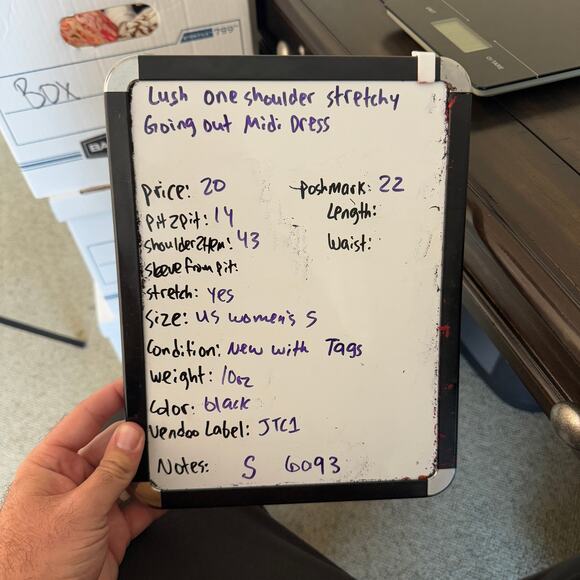 Lush one shoulder stretchy
Going out Midi Dress
price: 20
poshmark: 22
pit2pit: 14
Length:
shoulder2Hem: 43
Waist:
sleeve from pit:
stretch: yes
Size: US women's S
Condition: New with Tags
weight: 10oz
Color: black
Vendoo Label: JTC1
Notes: S 6093
BOX
799